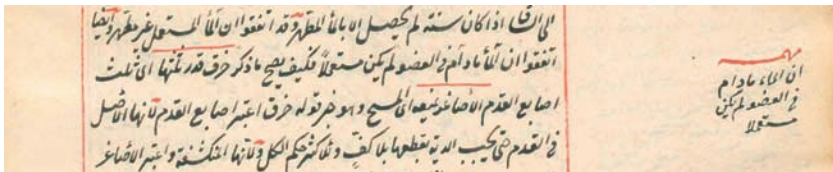 الى الشفاء اذا كان سنة لم يحصل الا بالماء المطهر وقد اتفقوا ان الماء المستعمل غير مطهر وايضا
اتفقوا ان الماء مادام في العضو لم يكن مستعملا فكيف يصح ما ذكر خرق قدر ثلثها اى ثلث
اصابع القدم الأصاغر يمنعه اى المسح وهو خبر قوله خرق اعتبر اصابع القدم لانها الاصل
في القدم حتى يجب الدية بقطعها بلا كف وللاكثر حكم الكل ولانها المنكشفة واعتبر الأصاغر
مهم
ان الماء مادام
في العضو لم يكن
مستعملا